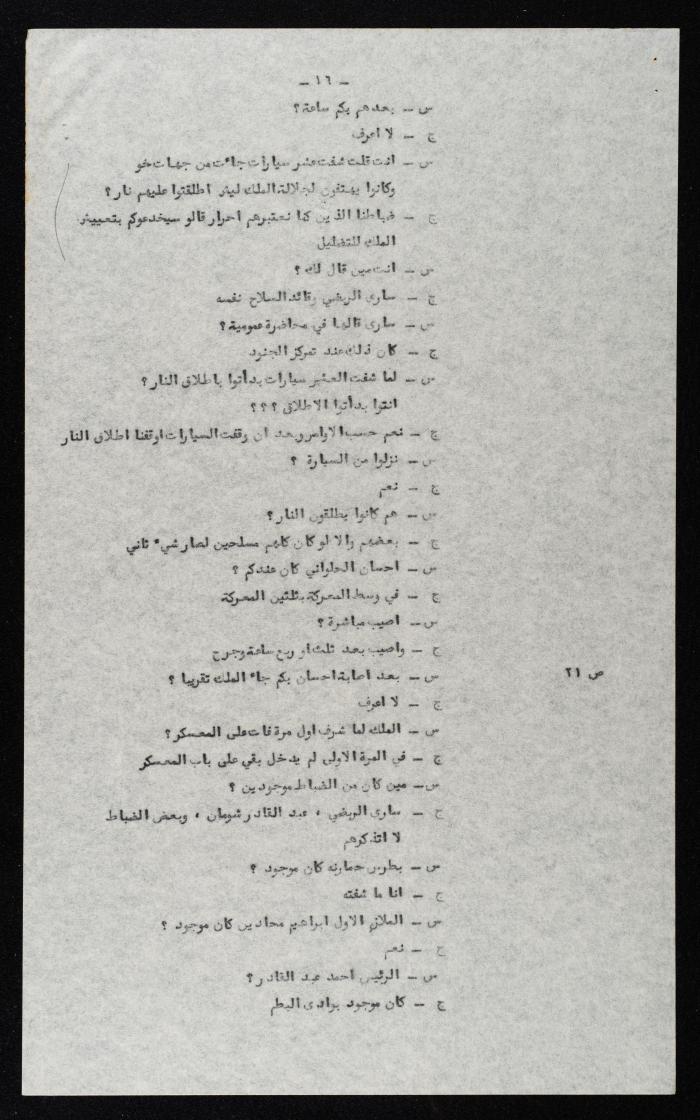 - ١٦ -
س - بعدهم بكم ساعة؟
ج - لا اعرف
س - انت قلت شفت عشر سيارات جاءت من جهات خو
وكانوا يهتفون لجلالة الملك ليش اطلقتوا عليهم نار؟
ج - ضباطنا الذين كنا نعتبرهم احرار قالو سيخدعوكم بتعييش
الملك للتضليل
س - انت مين قال لك؟
ج - سارى الريضي وقائد السلاح نفسه
س - سارى قالها في محاضرة عمومية؟
ج - كان ذلك عند تمركز الجنود
س - لما شفت العشر سيارات بدأتوا باطلاق النار؟
انتوا بدأتوا الاطلاق ؟؟؟
ج - نعم حسب الاوامر وبعد ان وقفت السيارات اوقفنا اطلاق النار
س - نزلوا من السيارة ؟
ج - نعم
س - هم كانوا يطلقون النار؟
ج - بعضهم والا لو كان كلهم مسلحين لصار شيء ثاني
س - احسان الحلواني كان عندكم ؟
ج - في وسط المعركة بثلثين المعركة
س - اصيب مباشرة؟
ج - واصيب بعد ثلث او ربع ساعة وجرح
س - بعد اصابة احسان بكم جاء الملك تقريبا ؟
ص ٢١
ج - لا اعرف
س - الملك لما شرف اول مرة فات على المعسكر؟
ج - في المرة الاولى لم يدخل بقي على باب المعسكر
س - مين كان من الضباط موجودين ؟
ج - سارى الريضي ، عبد القادر شومان ، وبعض الضباط
لا اتذكرهم
س - بطرس حمارنه كان موجود ؟
ج - انا ما شفته
س - الملازم الاول ابراهيم محادين كان موجود ؟
ج - نعم
س - الرئيس احمد عبد القادر؟
ج - كان موجود بوادى البطم